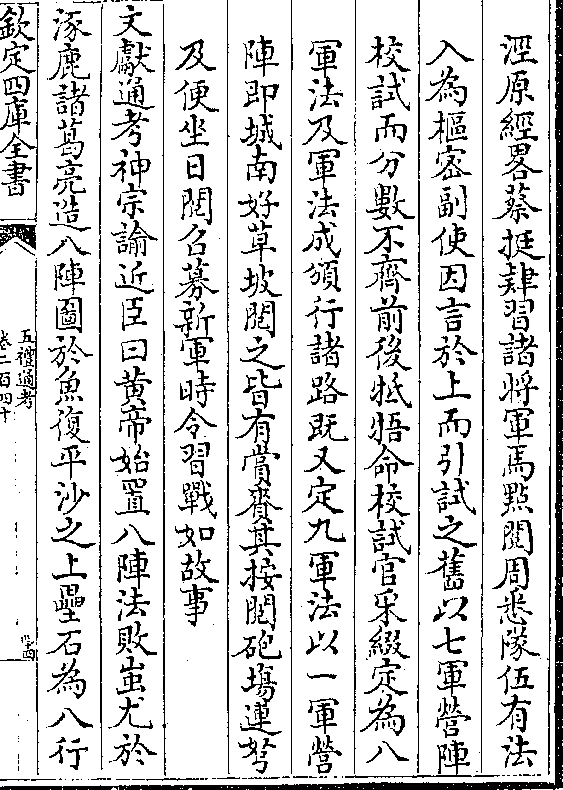 涇原經畧蔡挺肄習諸将軍馬㸃閱周悉隊伍有法
入為樞宻副使因言於上而引試之舊以七軍營陣
校試而分數不齊前後牴牾命校試官采綴定為八
軍法及軍法成頒行諸路既又定九軍法以一軍營
陣即城南好草坡閱之皆有賞賚其按閱砲塲連弩
及便坐日閱召募新軍時令習戰如故事
文獻通考神宗諭近臣曰黄帝始置八陣法敗蚩尤於
涿鹿諸葛亮造八陣圖於魚復平沙之上壘石為八行
欽定四庫全書
五禮通考
卷二百四十